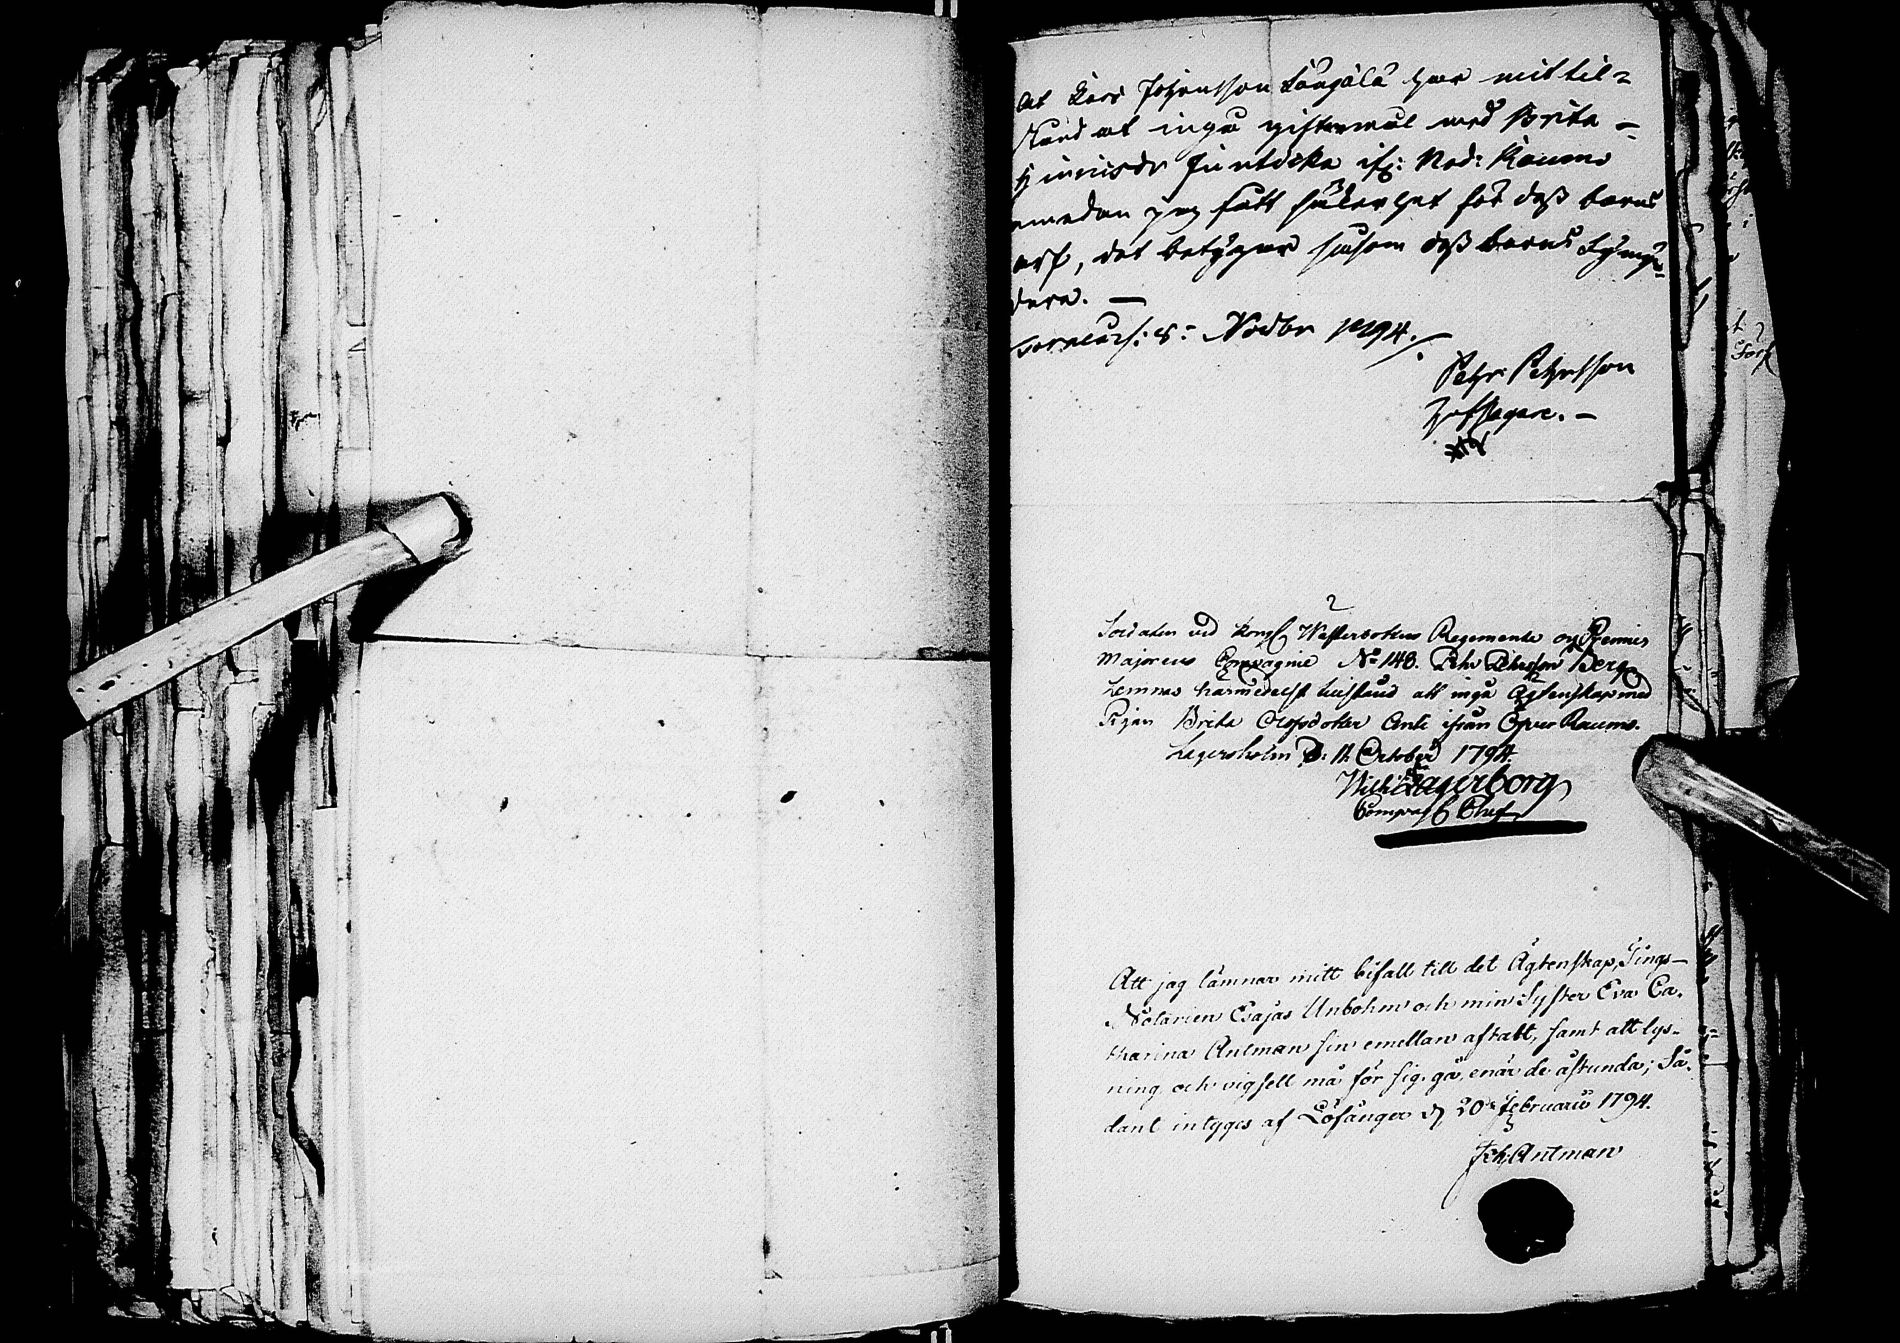 At Lars Johansson har mit til-
stånd at ingå giftermål med Brita
ifr: Ned: Raumo
emedan jag fått säkerhet för dess barns
arf, det betygar såsom dess barns förmyn-
dare. —
8: Novbr 1794.
Pehr Pehrsson
Soldaten vid Kongl Westerbottns Regemente och Premier
Majorens Compagnie No 148. Pehr Pehrsson Berg
Lemnas härmedelst tillstånd att ingå Ägtenskap med
Pigan Brita Olofsdotter Ante ifrån Öfver Raumo.
Lagersholm D: 11 October 1794.
Wilh: Lagerborg
Compag C Chef
Att jag lämnar mitt bifall till det Ägtenskap, Tings-
Notarien Esajas Unbohm och min Syster Eva Ca-
tharina Antman sin emellan aftalt, samt att lys-
ning och vigsell må för sig gå, enär de åstunda; Så-
dant intyges af Löfånger d 20 Februarii 1794.
Joh: Antman